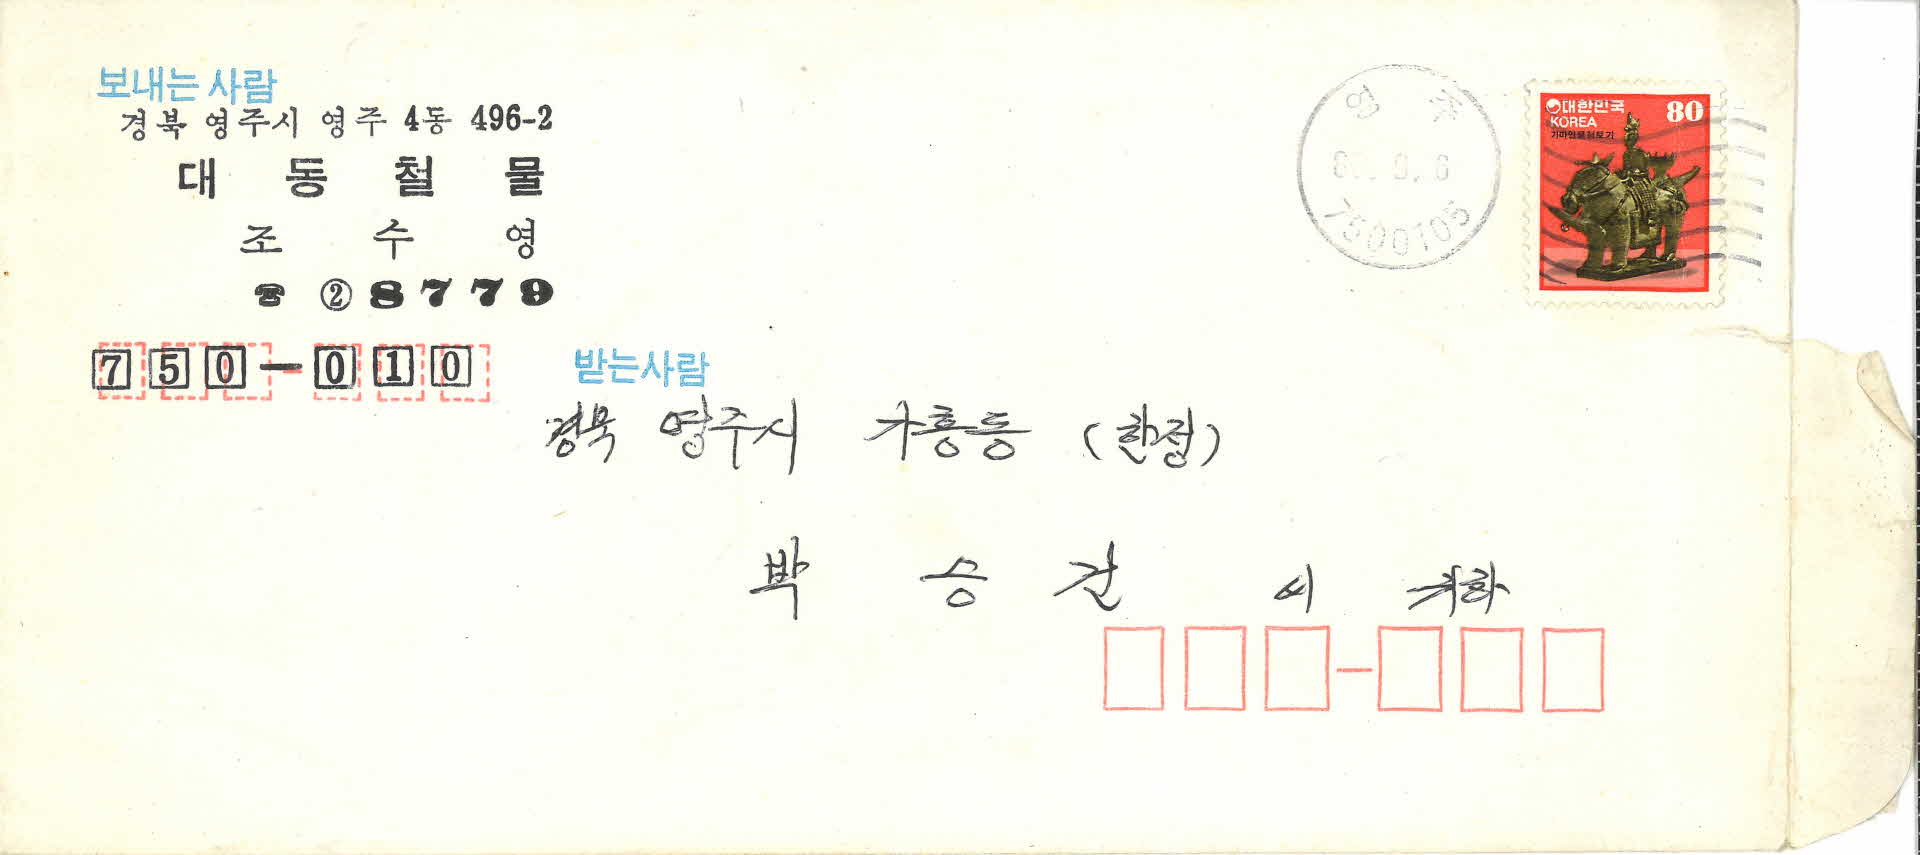 보내는 사람
경북 영주시 영주 4동 496-2
대동철물
조수영
☎ ② 8779
750-010
영주
7500105
대한민국 80
KOREA
기마인물형토기
받는사람
경북 영주시 가흥동 (한정)
박승건 씨 귀하